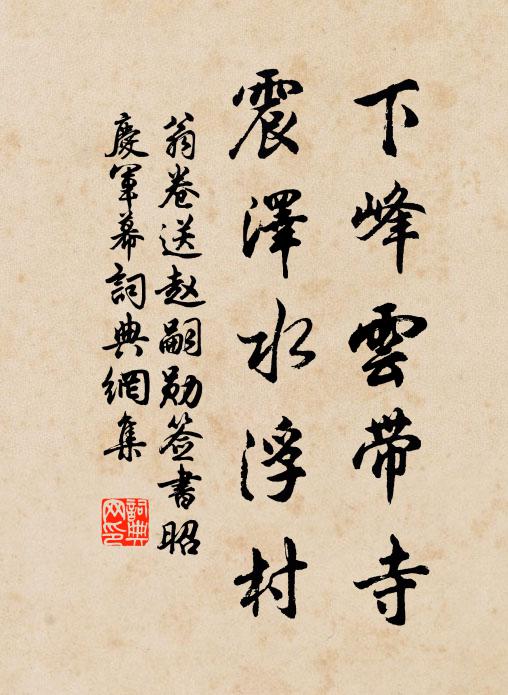 下峰雲帶寺
震澤水浮村
翁卷送赵嗣勋签書昭
慶軍幕詞典網集
詞典网印